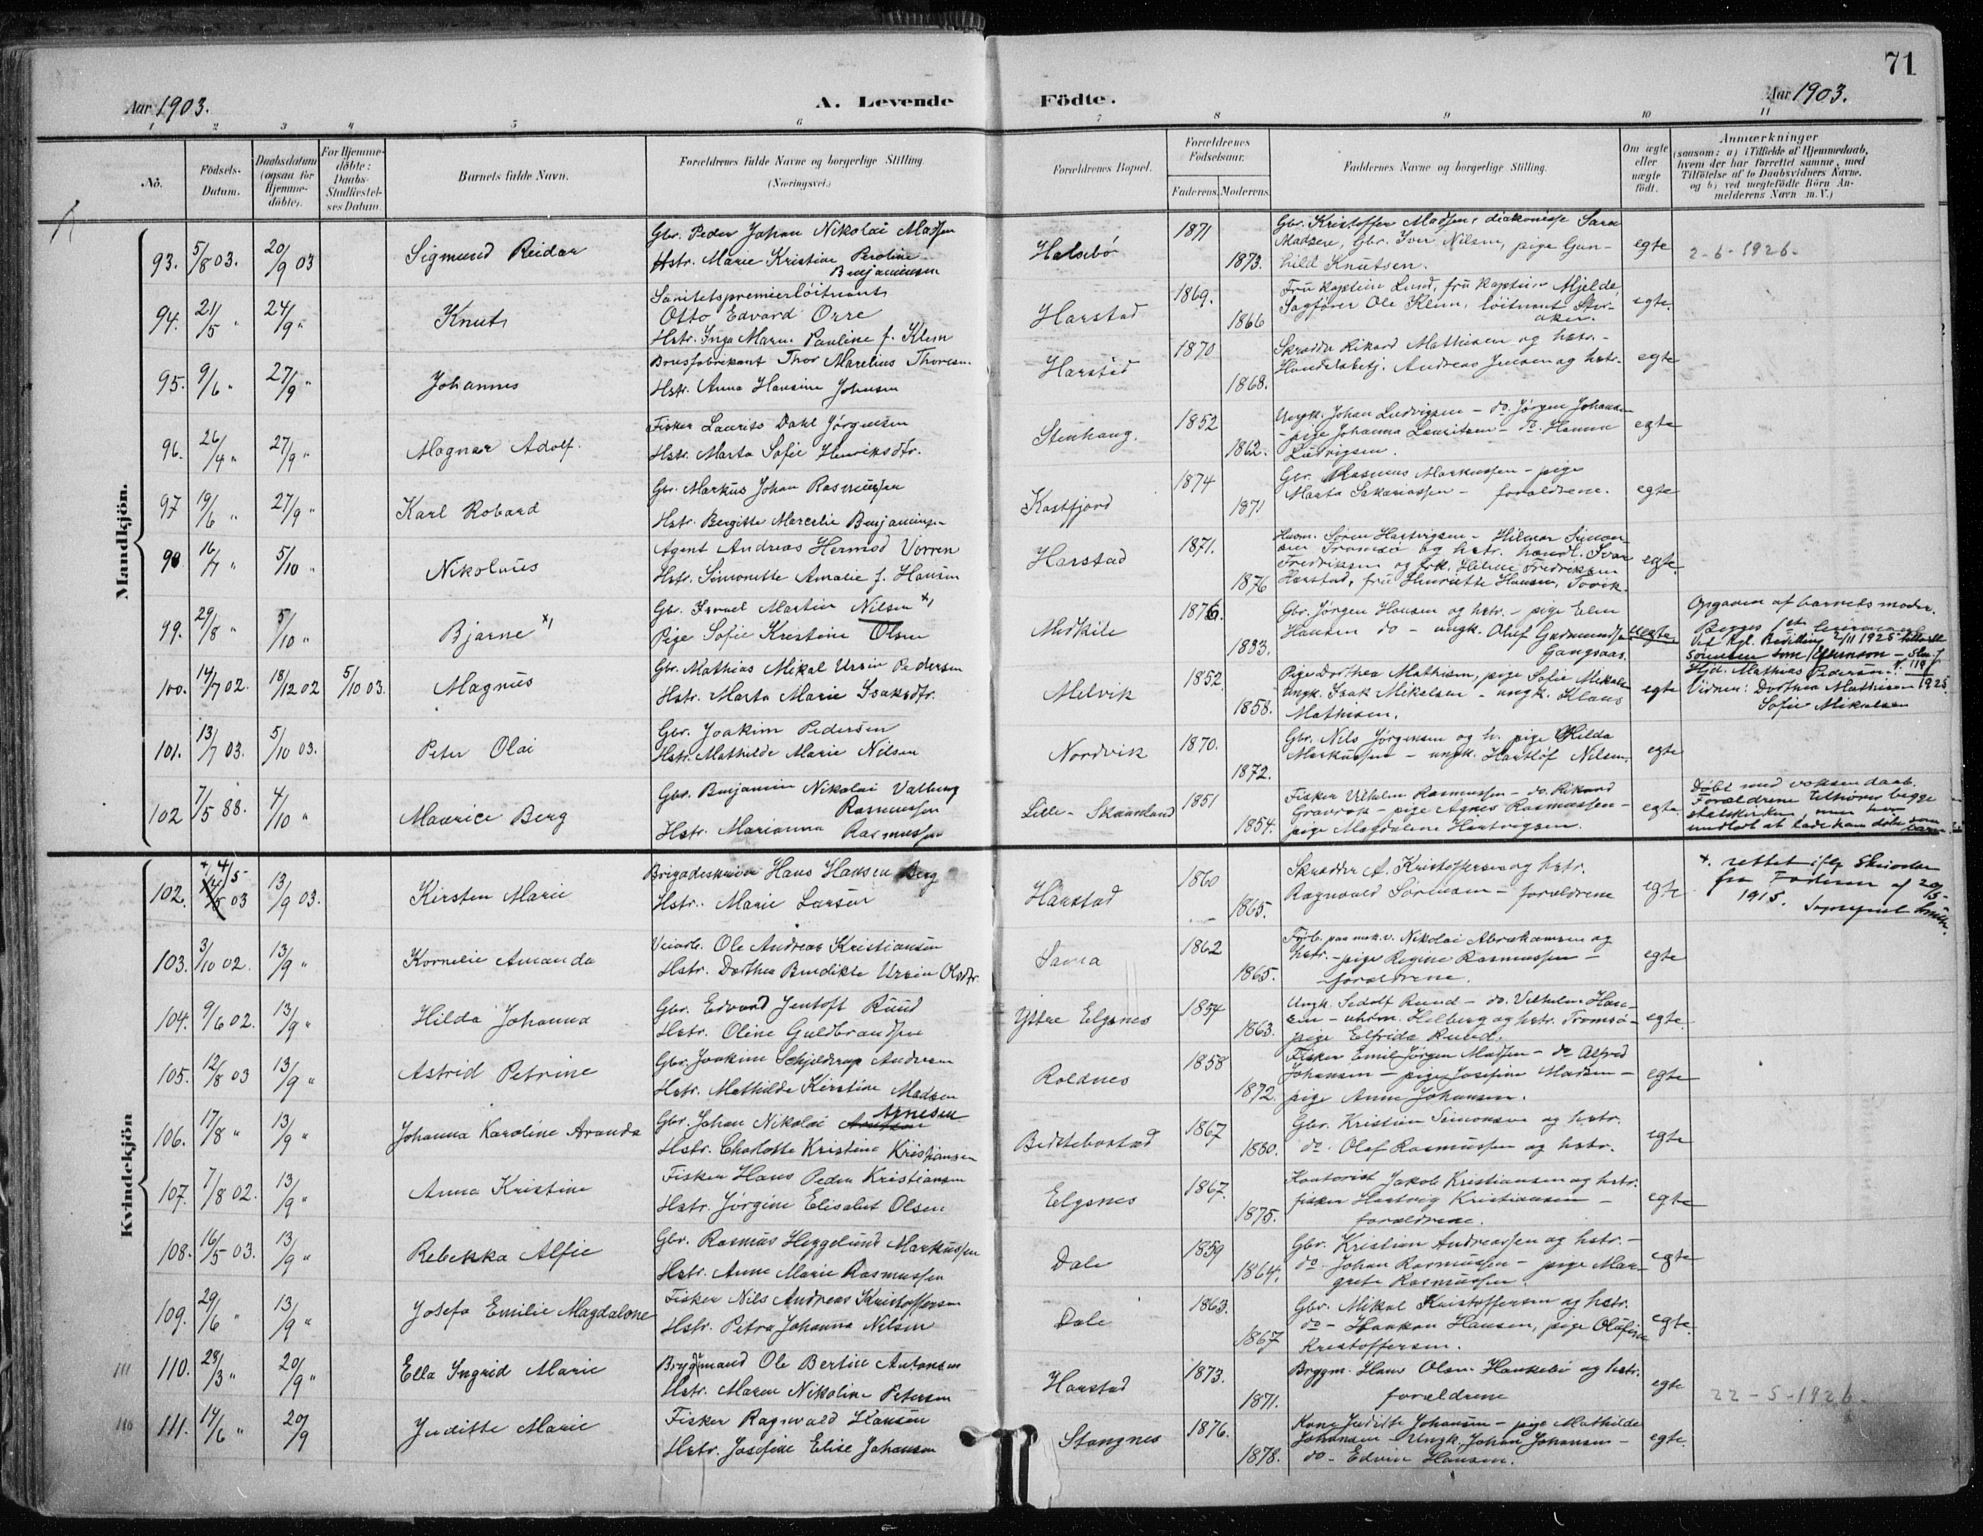 71
Aar 1903. A. Levende Födte. Aar 1903.
1 2 3 4 5 6 7 8 9 10 11
No. Födsels-Datum. Daabsdatum (ogsaa for Hjemme-döbte). For Hjemme-döbte: Daabs-Stadfæstel-ses Datum. Barnets fulde Navn. Forældrenes fulde Navne og borgerlige Stilling (Næringsvei.) Forældrenes Bopæl. Forældrenes Födselsaar. Faderens. Moderens. Faddernes Navne og borgerlige Stilling. Om ægte eller uægte födt. Anmærkninger (saasom: a) i Tilfælde af Hjemmedaab, hvem der har forrettet samme, med Tilföielse af to Daabsvidners Navne, og b) ved uægtefödte Börn An-melderens Navn m. V.)
Mandkjön.
93. 5/8 03. 20/9 03 Sigmund Reidar Gbr. Peder Johan Nikolai Madsen
Hstr. Marie Kristine Peroline Benjaminsen Halsebø 1871 1873. Gbr. Kristoffer Madsen, diakonesse Sara
Madsen, Gbr. Iver Nilsen, pige Gun-
hild Knutsen. egte 2-6-1926.
94. 21/5 " 24/9 " Knut Sanitetspremierløitnant
Otto Edvard Orre
Hstr. Inga Marn. Pauline f. Klem Harstad 1869. 1866 Fru kaptein Lund, fru kaptein Mjelde,
Sagfører Ole Klem, løitnant Stor-
aker. egte.
95. 9/6 " 27/9 " Johannes Brusfabrikant Thor Marelius Thoresen
Hstr. Anna Hansine Johnsen Harstad 1870 1868. Skrædder Rikard Mathisen og hstr. -
Handelsbetj. Andreas Jensen og hstr. egte
96. 26/4 " 27/9 " Magnar Adolf. Fisker Laurits Dahl Jørgensen
Hstr. Marta Sofie Henriksdtr. Stenhaug. 1852 1862. Ungk. Johan Ludvigsen - do. Jørgen Johansen
- pige Johanna Lauritsen - do. Hanna
Ludvigsen. egte
97 19/6 " 27/9 " Karl Robard Gbr. Markus Johan Rasmussen
Hstr. Bergitte Marcelie Benjaminsen Kastfjord 1874 1871 Gbr. Rasmus Markussen - pige
Marta Sakariassen - forældrene. egte
98 16/7 " 5/10 " Nikolaus Agent Andreas Hermod Vorren
Hstr. Simonette Amalie f. Hansen Harstad 1871. 1876 Husm. Søren Hartvigsen - Hilmar Simon-
sen Tromsø og hstr. handl. Ivar
Fredriksen og frk. Helene Fredriksen
Harstad, fru Henriette Hansen, Tovik. egte.
99. 29/8 " 5/10 " Bjarne x) Gbr. Israel Martin Nilsen x)
Pige Sofie Kristine Olsen Medkile 1876 1883. Gbr. Jørgen Hansen og hstr. - pige Elen
Hansen do - ungk. Oluf Gudmundsen
Gangsaas. uegte. Opgaven af barnets moder.
Begges 1ste leiermaal
100. 14/7 02. 18/12 02 5/10 03. Magnus Gbr. Mathias Mikal Ursin Pedersen
Hstr. Marta Marie Isaksdtr. Melvik 1852. 1858. Pige Dorthea Mathisen, pige Sofie Mikalsen
Ungk. Isak Mikalsen - ungk. Klaus
Mathisen. egte Hjd. Mathias Pedersen.
Vidner: Dorthea Mathisen
Sofie Mikalsen
101. 13/7 03. 5/10 03. Peter Olai Gbr. Joakim Pedersen
Hstr. Mathilde Marie Nilsen Nordvik 1870. 1872. Gbr. Nils Jørgensen og h. pige Hilda
Markussen - ungk. Hartlof Nilsen. egte
102 7/5 88. 4/10 " Maurice Berg Gbr. Benjamin Nikolai Valberg Rasmussen
Hstr. Marianna Rasmussen Lille-Skaanland 1851 1854. Fisker Vilhelm Rasmussen - do. Rikard
Gravrok - pige Agnes Rasmussen -
pige Magdalene Hartvigsen. egte Døbt med voksen daab.
Forældrene tilhører begge
statskirken men har
undladt at lade ham døbe som barn
Kvindekjön
102. x 4/5 03 13/9 03. Kirsten Marie Brigadeskriver Hans Hansen Berg
Hstr. Marie Larsen Harstad 1860 1865. Skrædder A. Kristoffersen og hstr.
Ragnvald Sørensen - forældrene egte x. rettet iflg. Skrivelse
fra Faderen af 20/5-
1915.
103. 3/10 02. 13/9 " Kornelie Amanda Veiarb. Ole Andreas Kristiansen
Hstr. Dorthea Bendikte Ursin Olsdtr. Sama 1862 1865. Nikolai Abrahamsen og
hstr. - pige Regine Rasmussen -
forældrene. egte
104. 9/6 02. 13/9 " Hilda Johanna Gbr. Edvard Jentoft Ruud
Hstr. Oline Guldbrandsen Yttre Elgsnes 1854 1863. Ungk. Sedolf Ruud - do. Vilhelm Han-
sen - Helberg og hstr. Tromsø -
pige Elfrida Ruud. egte.
105. 12/8 03 13/9 " Astrid Petrine Gbr. Joakim Schjelderup Andersen
Hstr. Mathilde Kirstine Madsen Roldnes 1858 1872. Fisker Emil Jørgen Madsen - do Alfred
Johansen - pige Josefine Madsen -
pige Anna Johansen. egte
106. 17/8 " 13/9 " Johanna Karoline Aranda Gbr. Johan Nikolai Arnesen
Hstr. Charlotte Kristine Kristiansen Bessebostad 1867 1880. Gbr. Kristian Simonsen og hstr.
do. Olaf Rasmussen og hstr. egte
107. 7/8 02. 13/9 " Anna Kristine Fisker Hans Peder Kristiansen
Hstr. Jørgine Elisabet Olsen Elgsnes 1867. 1875. Kontorist Jakob Kristiansen og hstr.
fisker Hartvig Kristiansen -
forældrene. egte
108. 16/5 03. 13/9 " Rebekka Alfie Gbr. Rasmus Heggelund Markussen
Hstr. Anne Marie Rasmussen Dale 1859 1864. Gbr. Kristian Andreassen og hstr. -
do. Johan Rasmussen - pige Mar-
grete Rasmussen. egte
109. 29/6 " 13/9 " Josefa Emilie Magdalone Fisker Nils Andreas Kristoffersen
Hstr. Petra Johanna Nilsen Dale 1863. 1867 Gbr. Mikal Kristoffersen og hstr.
do - Haakon Hansen, pige Olufine
Kristoffersen. egte.
111 110. 28/3 " 20/9 " Ella Ingrid Marie Brygmand Ole Bertin Antonsen
Hstr. Maren Nikoline Petersen Harstad 1873. 1871. Bryggm. Hans Olsen Hankebø og hstr.
forældrene egte 22-5-1926.
110 111. 14/6 " 20/9 Juditte Marie Fisker Ragnvald Hansen
Hstr. Josefine Elise Johansen Stangnes 1876. 1878. Kone Juditte Johansen - pige Mathilde
Johansen - Ungk. Johan Johansen -
do - Edvin Hansen. egte.